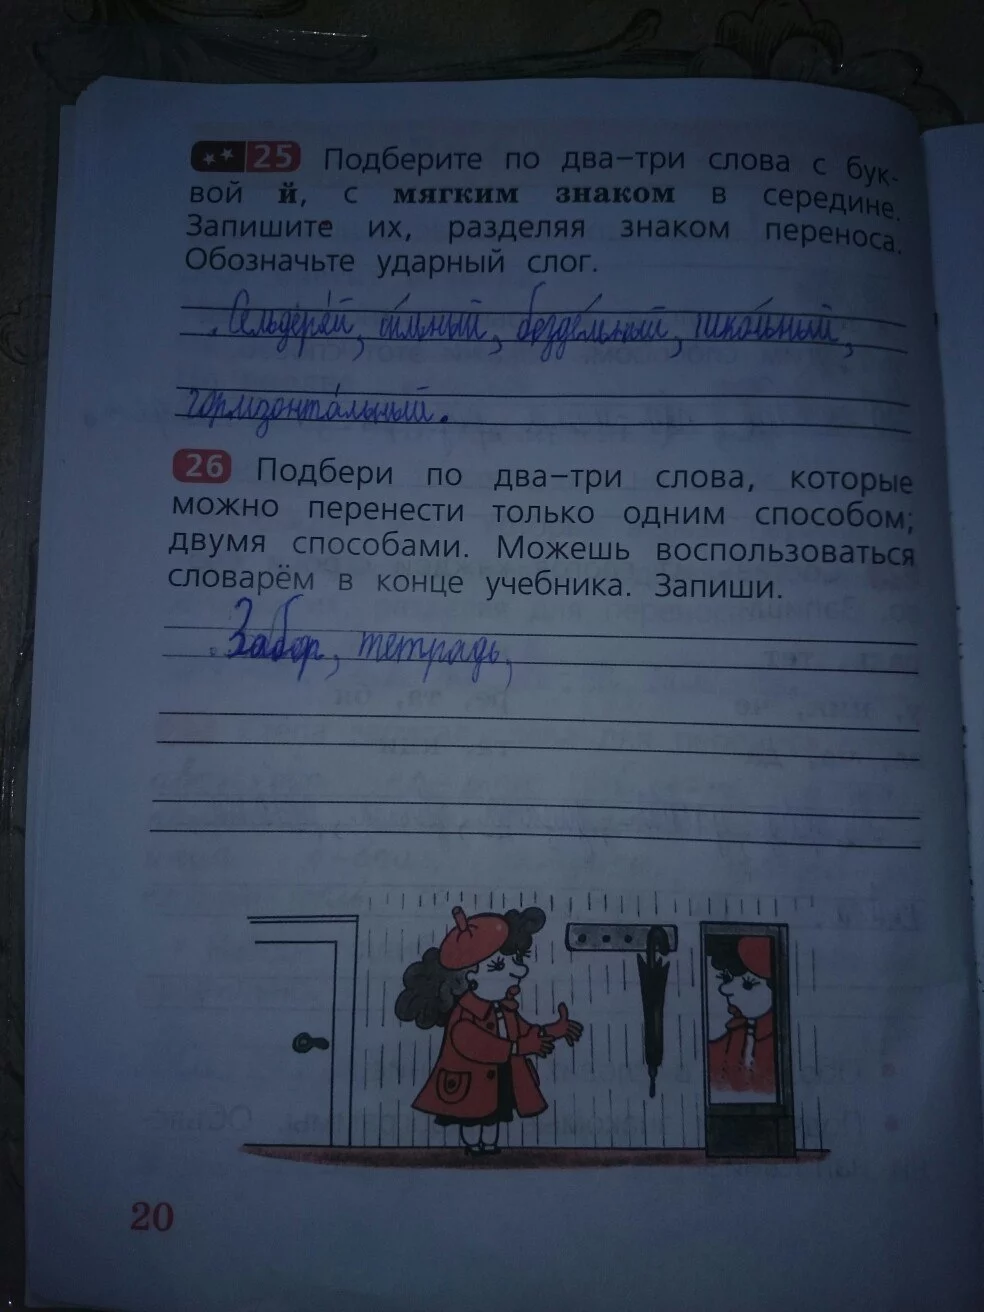 25 Подберите по два–три слова с бук-
вой й, с мягким знаком в середине.
Запишите их, разделяя знаком переноса.
Обозначьте ударный слог.
Сельдерей, сильный, бездельный, школьный,
горизонтальный.
26 Подбери по два–три слова, которые
можно перенести только одним способом;
двумя способами. Можешь воспользоваться
словарём в конце учебника. Запиши.
Забор, тетрадь,
20